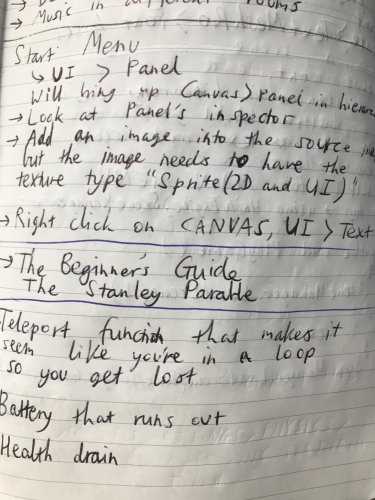 → Music in different rooms
Start Menu
↳ UI > Panel
Will bring up Canvas > Panel in hierarc
→ Look at Panel's inspector
→ Add an image into the source
but the image needs to have the
texture type "Sprite (2D and UI)"
→ Right click on CANVAS, UI > Text
→ The Beginner's Guide
The Stanley Parable
Teleport function that makes it
seem like you're in a loop
so you get lost
Battery that runs out
Health drain